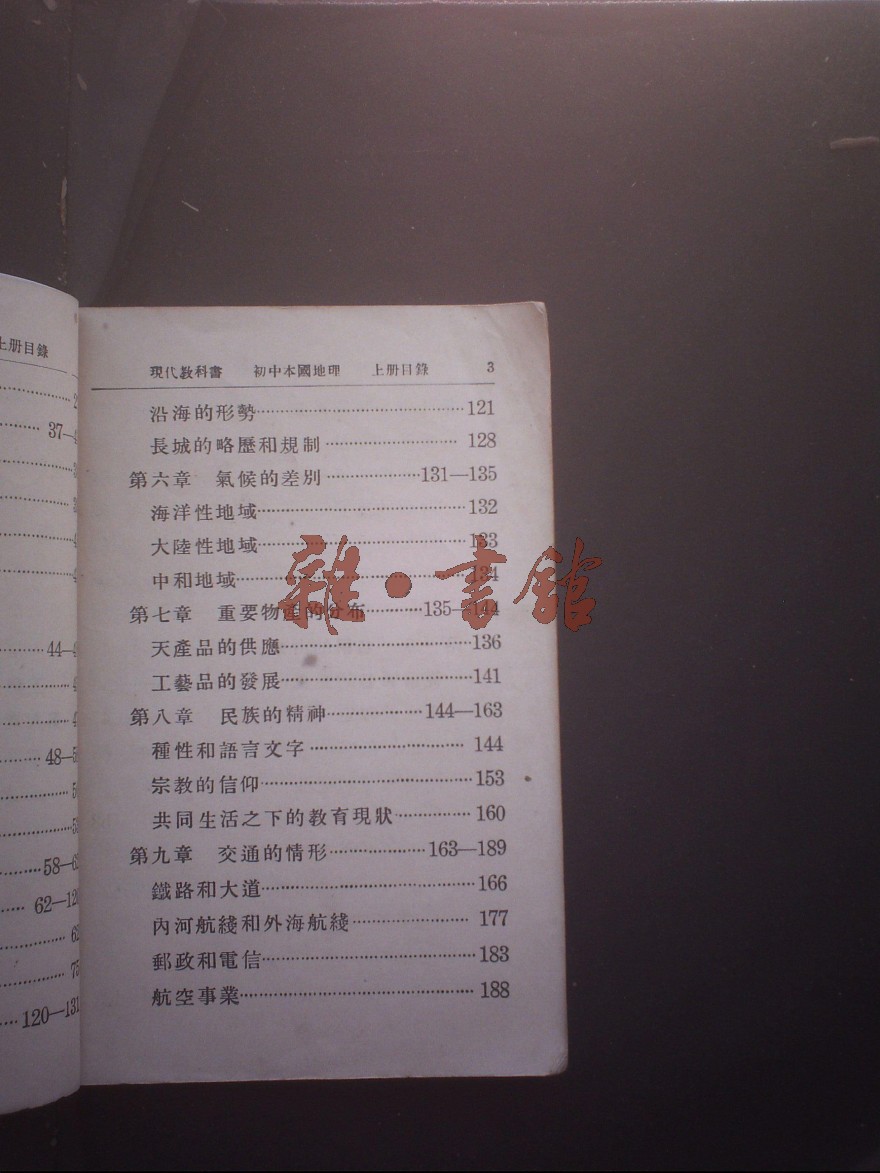 上册目錄
37—
44—
48—5
58—6
62—12
62
75
120—131
現代教科書 初中本國地理 上册目錄 3
沿海的形勢……………………121
長城的略歷和規制……………128
第六章 氣候的差別……………131—135
海洋性地域……………………132
大陸性地域……………………133
中和地域………………………134
第七章 重要物產的分布………135—144
天產品的供應…………………136
工藝品的發展…………………141
第八章 民族的精神……………144—163
種性和語言文字………………144
宗教的信仰……………………153
共同生活之下的教育現狀……160
第九章 交通的情形……………163—189
鐵路和大道……………………166
內河航綫和外海航綫…………177
郵政和電信……………………183
航空事業………………………188
雜·書館